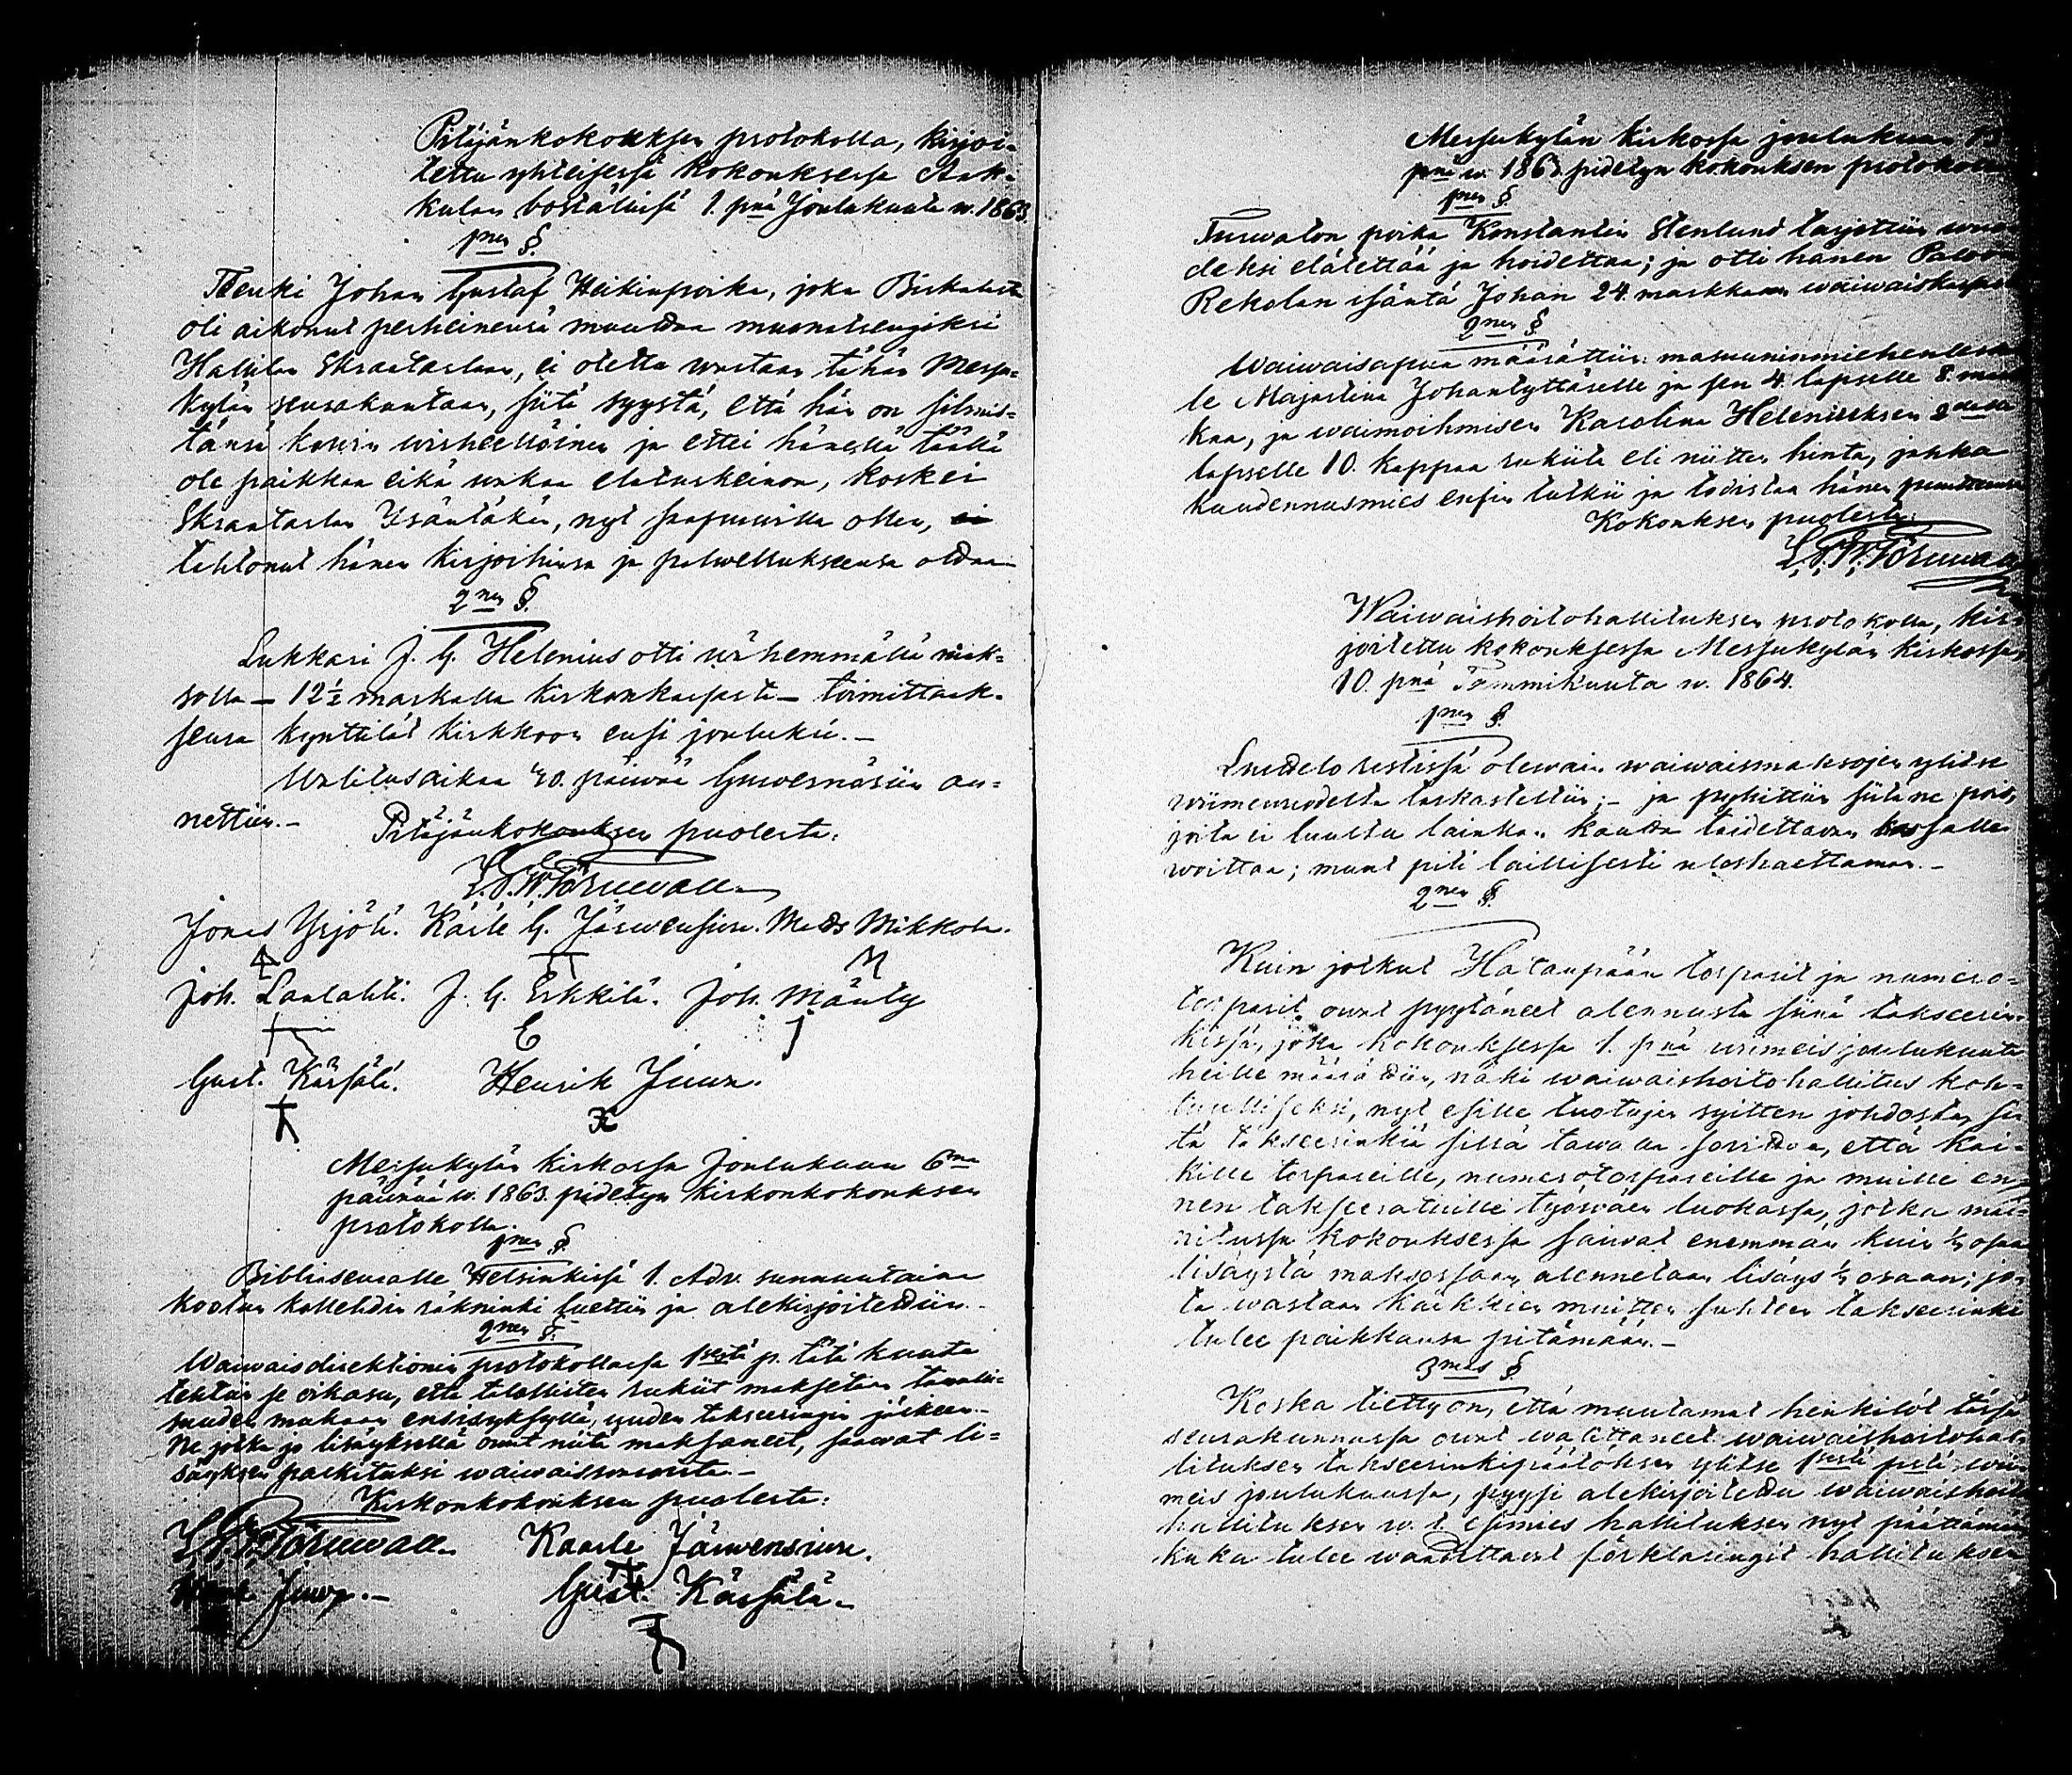 Pitäjänkokouksen protokolla, kirjoi-
tettu yhteisessä kokouksessa Aak-
kulan boställissä 1. pnä Joulukuuta w. 1863.
1nen §.
Renki Johan Gustaf Heikinpoika, joka Birkalasta
oli aikonut perheinensä muuttaa muonatrengiksi
Hatulan Skraatarlaan, ei otettu wastaan tähän Messu-
kylän seurakuntaan, siitä syystä, että hän on silmis-
tänsä kowin wirheellöinen ja ettei hänellä täällä
ole paikkaa eikä wakaa elatuskeinoa, kosk ei
Skraatarlan Isäntäkän, nyt saapuwilla ollen,
tahtonut hänen kirjoihinsa ja palwellukseensa ottaa.
2nen §.
Lukkari J. G. Helenius otti wähemmällä mak-
solla – 12 1/2 markalla kirkonkassasta – toimittaak-
sensa kynttilät kirkkoon ensi jouluksi. –
Walitusaikaa 30. päiwää Guwernöriin an-
nettiin. –
Pitäjänkokouksen puolesta:
L. G. W. Törnwall
Jonas Yrjölä. Kaarle G. Järwensiwu. Matts Mikkola.
Joh. Lantalahti. J. G. Erkkilä. Joh. Mänty
E J
Gust. Kärsälä. Henrik Juwa.
Messukylän kirkossa Joulukuun 6na
päiwänä w. 1863. pidetyn kirkonkokouksen
protokolla.
1nen §.
Bibliaseuralle Helsinkissä 1. Adv. sunnuntaina
kootun kollehdin räkninki luettiin ja alekirjoitettiin.
2nen §.
Waiwaisdirektionin protokollassa 1sestä p. tätä kuuta
tehtiin se oikasu, että talollisten rukiit maksetaan tawalli-
suuden mukaan ensisyksyllä, uuden takseeringin jälkeen.
Ne jotka jo lisäyksellä owat niitä maksaneet, saawat li-
säyksen palkituksi waiwaissuonta. –
Kirkonkokouksen puolesta:
L. G. W. Törnwall Kaarle Järwensiwu.
Juwa. – Gust. Kärsälä.
Messukylän kirkossa joulukuun
pnä w. 1863 pidetyn kokouksen protokolla
1nen §.
Turwaton poika Konstantin Stenlund tarjottiin wuo-
deksi elätettää ja hoidettaa; ja otti hänen
Rekolan isäntä Johan 24. markkaan waiwaiskassasta
2nen §.
Waiwaisapua määrättiin: masuuninmiehenleskel-
le Majastina Johantyttärelle ja sen 4. lapselle 8. mark-
kaa, ja waimoihmisen Karolina Heleniuksen
lapselle 10. kappaa rukiita eli niitten hinta, jahka
kuudennusmies ensin tutkii ja todistaa hänen
Kokouksen puolesta:
L. G. W. Törnwall
Waiwaishoitohallituksen protokolla, kir-
joitettu kokouksessa Messukylän kirkossa,
10. pnä Tammikuuta w. 1864.
1nen §.
Luettelo restissä olewain waiwaismaksojen ylitse
wiimewuodelta tarkastettiin; – ja pyhittiin siitä ne pois,
joita ei luultu lainkaan kautta taidettawan kassalle
woittaa; muut piti laillisesti uloshaettaman. –
2nen §.
Kuin jotkut Hatanpään torparit ja numero-
torparit owat pyytäneet alennusta siinä takseerin-
kissä, joka kokouksessa 1. pnä wiimeis joulukuuta
heille määrättiin, näki waiwaishoitohallitus koh-
tuulliseksi, nyt esille tuotujen syitten johdosta, sii-
tä takseerinkiä sillä tawalla sowittaa, että kai-
kille torpareille, numerotorpareille ja muille en-
nen takseeratuille työwäen luokassa, jotka mai-
nitussa kokouksessa saiwat enemmän kuin 1/2 osaa
lisäystä maksossaan, alennetaan lisäys 1/2 osaan; jo-
ta wastaan kaikkien muitten suhteen takseerinki
tulee paikkansa pitämään. –
3mas §.
Koska tietty on, että muutamat henkilöt tässä
seurakunnassa owat walittaneet waiwaishoitohal-
lituksen takseerinkipäätöksen ylitse 1sestä pstä wii-
meis joulukuussa, pyysi alekirjoitettu waiwaishoito-
hallituksen w. t. esimies hallituksen nyt päättämään
kuka tulee waadittawat förklaringit hallituksen